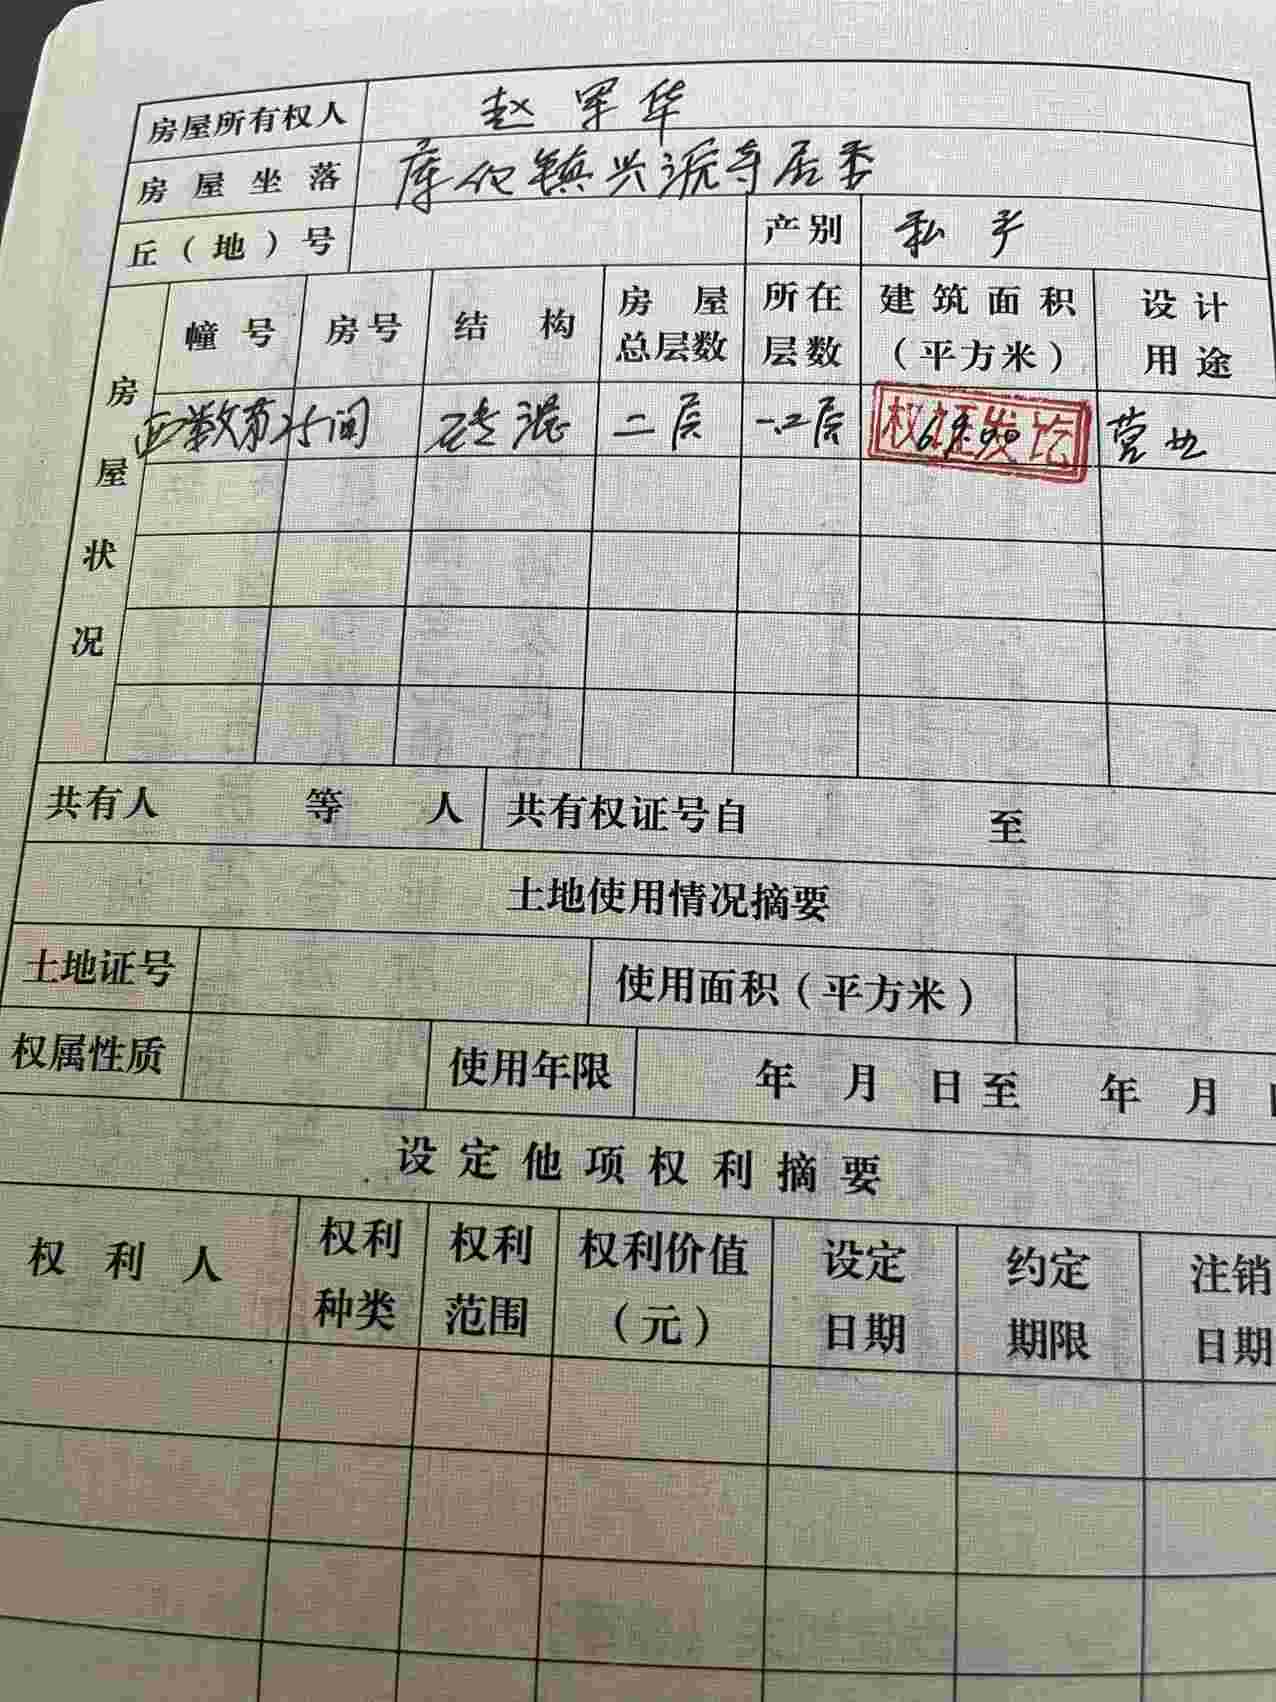 房屋所有权人 赵军华
房屋坐落 库伦镇兴源寺居委
丘（地）号 产别 私产
房屋状况 幢号 房号 结构 房屋总层数 所在层数 建筑面积（平方米） 设计用途
西数第25间 砖混 二层 一.二层 权证发讫 营业
共有人 等 人 共有权证号自 至
土地使用情况摘要
土地证号 使用面积（平方米）
权属性质 使用年限 年 月 日至 年 月
设定他项权利摘要
权利人 权利种类 权利范围 权利价值（元） 设定日期 约定期限 注销日期